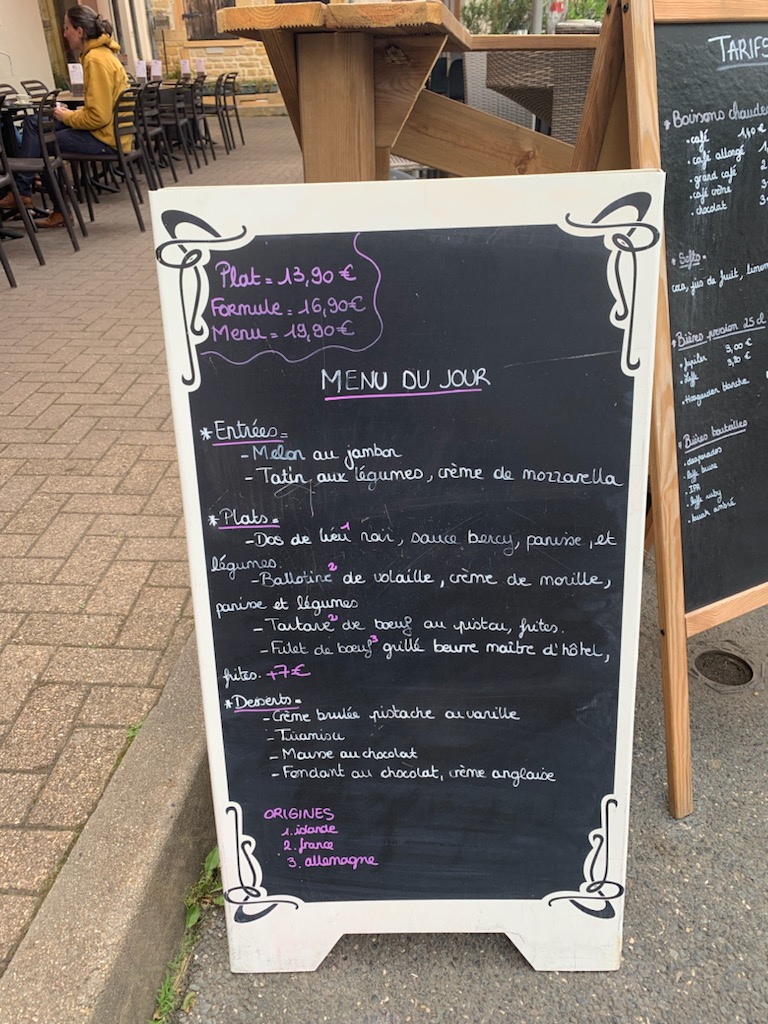 Plat = 13,90 €
Formule = 16,90€
Menu = 19,90€
MENU DU JOUR
* Entrées =
- Melon au jambon
- Tatin aux légumes, crème de mozzarella
* Plats =
- Dos de lieu 1 noir, sauce bercy, panisse, et
légumes.
- Ballotine 2 de volaille, crème de morille,
panisse et légumes
- Tartare 2 de bœuf au pistou, frites.
- Filet de bœuf 3 grillé beurre maître d'hôtel,
frites. +7€
* Desserts =
- Crème brulée pistache ou vanille
- Tiramisu
- Mousse au chocolat
- Fondant au chocolat, crème anglaise
ORIGINES
1. islande
2. france
3. allemagne
TARIFS
* Boissons chaudes
• café 1,40 €
• café allongé 1,
• grand café 2
• café crème 3
• chocolat 3
* Softs
coca, jus de fruit, limon
* Bières pression 25 cl
• jupiler 3,00 €
• leffe 3,20 €
• Hoegaarden blanche
* Bières bouteilles
• desperados
• leffe brune
• IPA
• leffe ruby
• kwak ambré